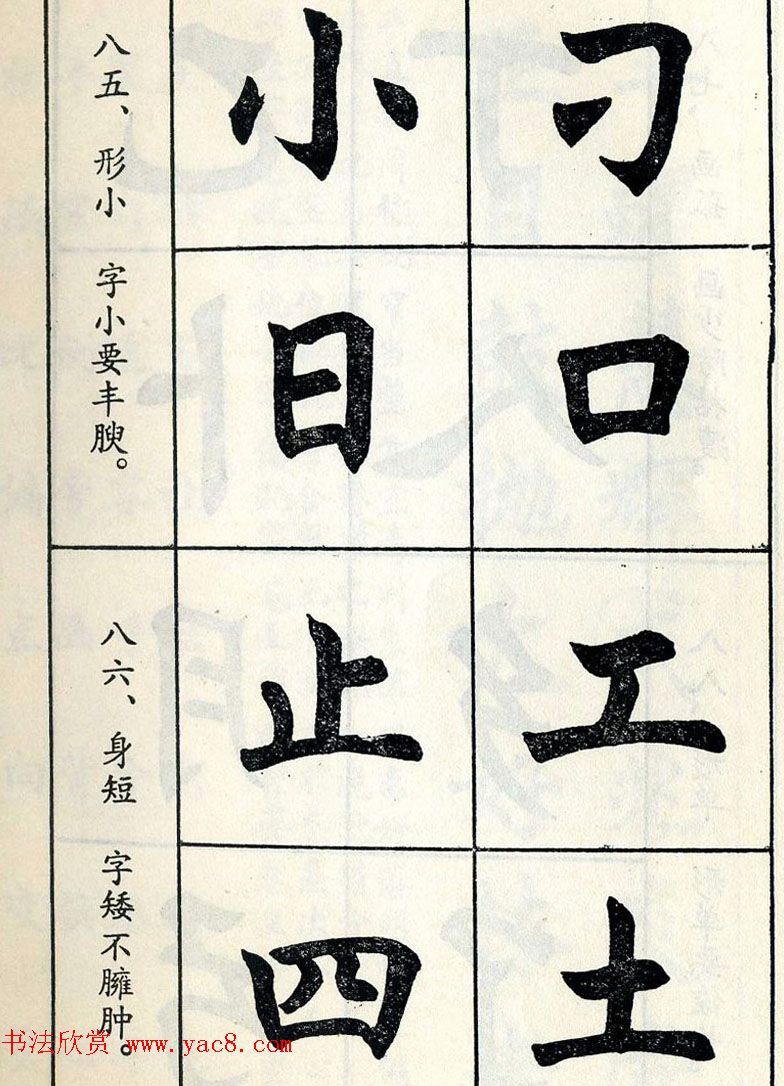 八五、形小 字小要丰腴。
小 刁
日 口
八六、身短 字矮不臃肿。
止 工
四 土
书法欣赏 www.yac8.com